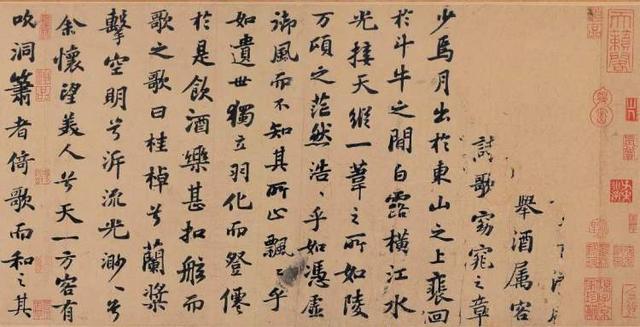 天籟閣
舉酒属客
詩歌窈窕之章
少焉月出於東山之上裵回
於斗牛之間白露橫江水
光接天縱一葦之所如陵
万頃之茫然浩〻乎如憑虛
御風而不知其所止飄〻乎
如遺世獨立羽化而登僊
於是飲酒樂甚扣舷而
歌之歌曰桂棹兮蘭槳
擊空明兮泝流光渺〻兮
余懷望美人兮天一方客有
吹洞簫者倚歌而和之其